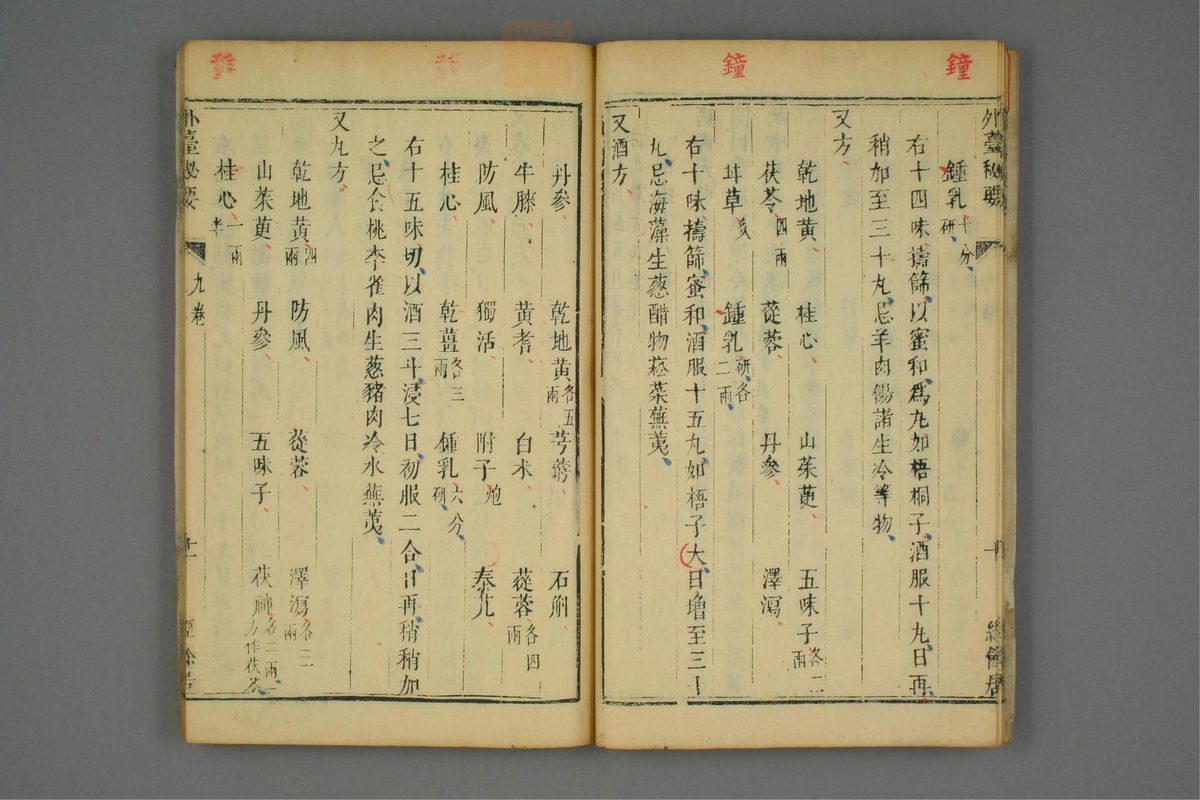 鐘
鐘
外臺秘要
十
經餘居
鍾乳十分研
右十四味擣篩以蜜和爲丸如梧桐子酒服十丸日再
稍加至三十丸忌羊肉餳諸生冷等物
又方
乾地黄 桂心 山茱萸 五味子各三兩
茯苓四兩 蓯蓉 丹參 澤瀉
甘草炙 鍾乳研各二兩
右十味擣篩蜜和酒服十五丸如梧子大日增至三十
丸忌海藻生葱醋物菘菜蕪荑
又酒方
丹參 乾地黄各五兩 芎藭 石斛
牛膝 黄耆 白朮 蓯蓉各四兩
防風 獨活 附子炮 秦艽
桂心 乾薑各三兩 鍾乳六分研
右十五味切以酒三斗浸七日初服二合日再稍稍加
之忌食桃李雀肉生葱豬肉冷水蕪荑
又丸方
乾地黄四兩 防風 蓯蓉 澤瀉各三兩
山茱萸 丹參 五味子 茯神各二兩一方作茯苓
桂心一兩半
外臺秘要
九卷
十一
經餘居